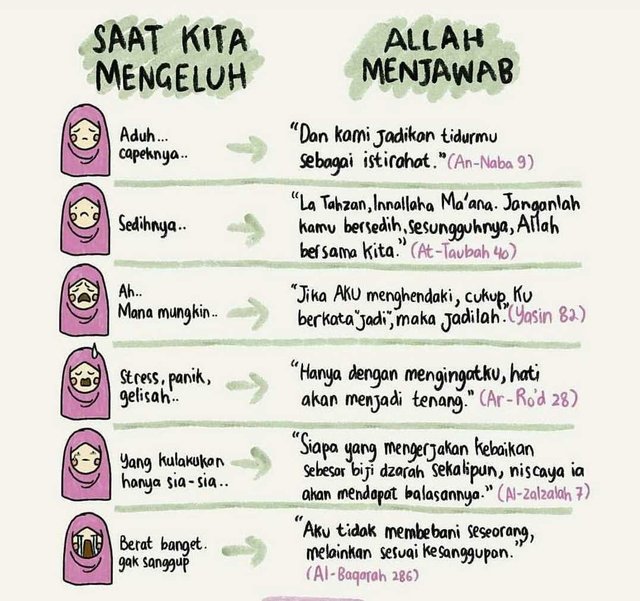 SAAT KITA
MENGELUH
ALLAH
MENJAWAB
Aduh...
capeknya..
"Dan kami jadikan tidurmu
sebagai istirahat." (An-Naba 9)
Sedihnya..
"La Tahzan, Innallaha Ma'ana. Janganlah
kamu bersedih, sesungguhnya, Allah
bersama kita." (At-Taubah 40)
Ah..
Mana mungkin..
"Jika AKU menghendaki, cukup Ku
berkata "jadi", maka jadilah." (Yasin 82)
Stress, panik,
gelisah..
"Hanya dengan mengingatku, hati
akan menjadi tenang." (Ar-Ro'd 28)
Yang kulakukan
hanya sia-sia..
"Siapa yang mengerjakan kebaikan
sebesar biji dzarah sekalipun, niscaya ia
akan mendapat balasannya." (Al-Zalzalah 7)
Berat banget.
gak sanggup
"Aku tidak membebani seseorang,
melainkan sesuai kesanggupan."
(Al-Baqarah 286)